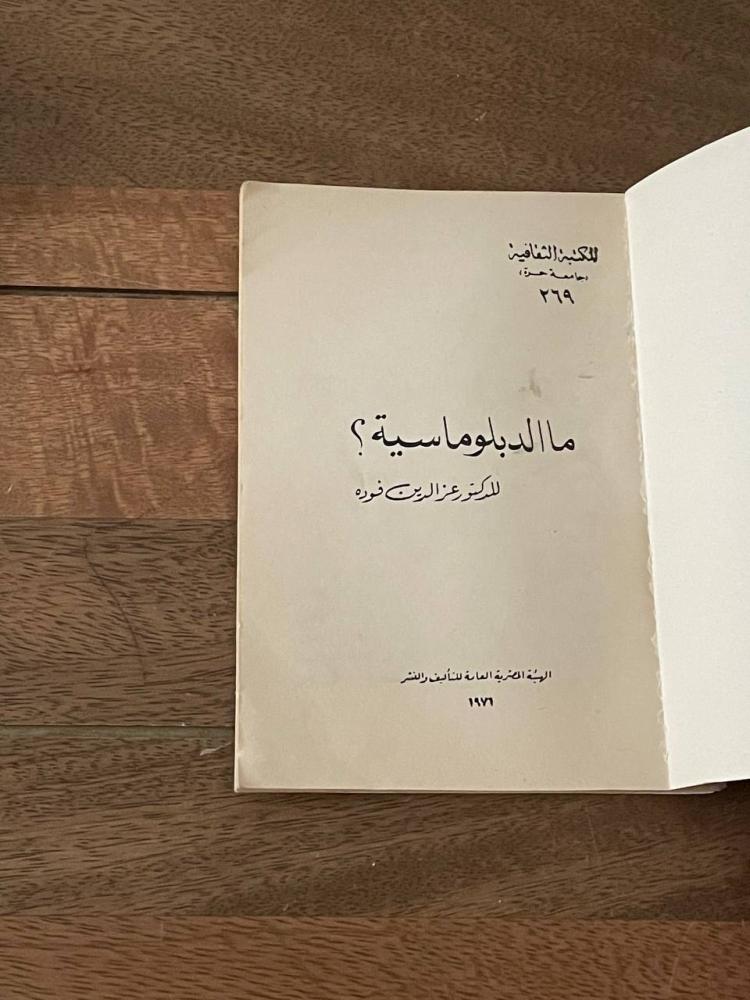 المكتبة الثقافية
(جامعة حرة)
٢٦٩
ما الدبلوماسية ؟
للدكتور عز الدين فوده
الهيئة المصرية العامة للتأليف والنشر
١٩٧١